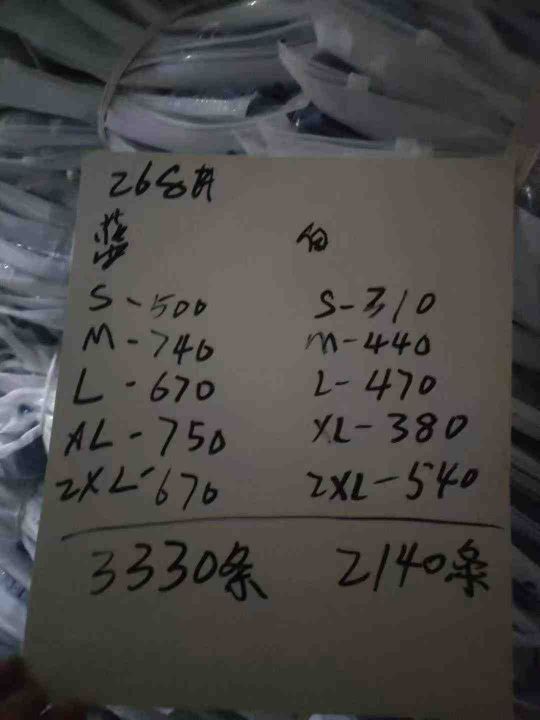 蓝 白
S-500 S-310
M-740 M-440
L-670 L-470
XL-750 XL-380
2XL-670 2XL-540
3330条 2140条